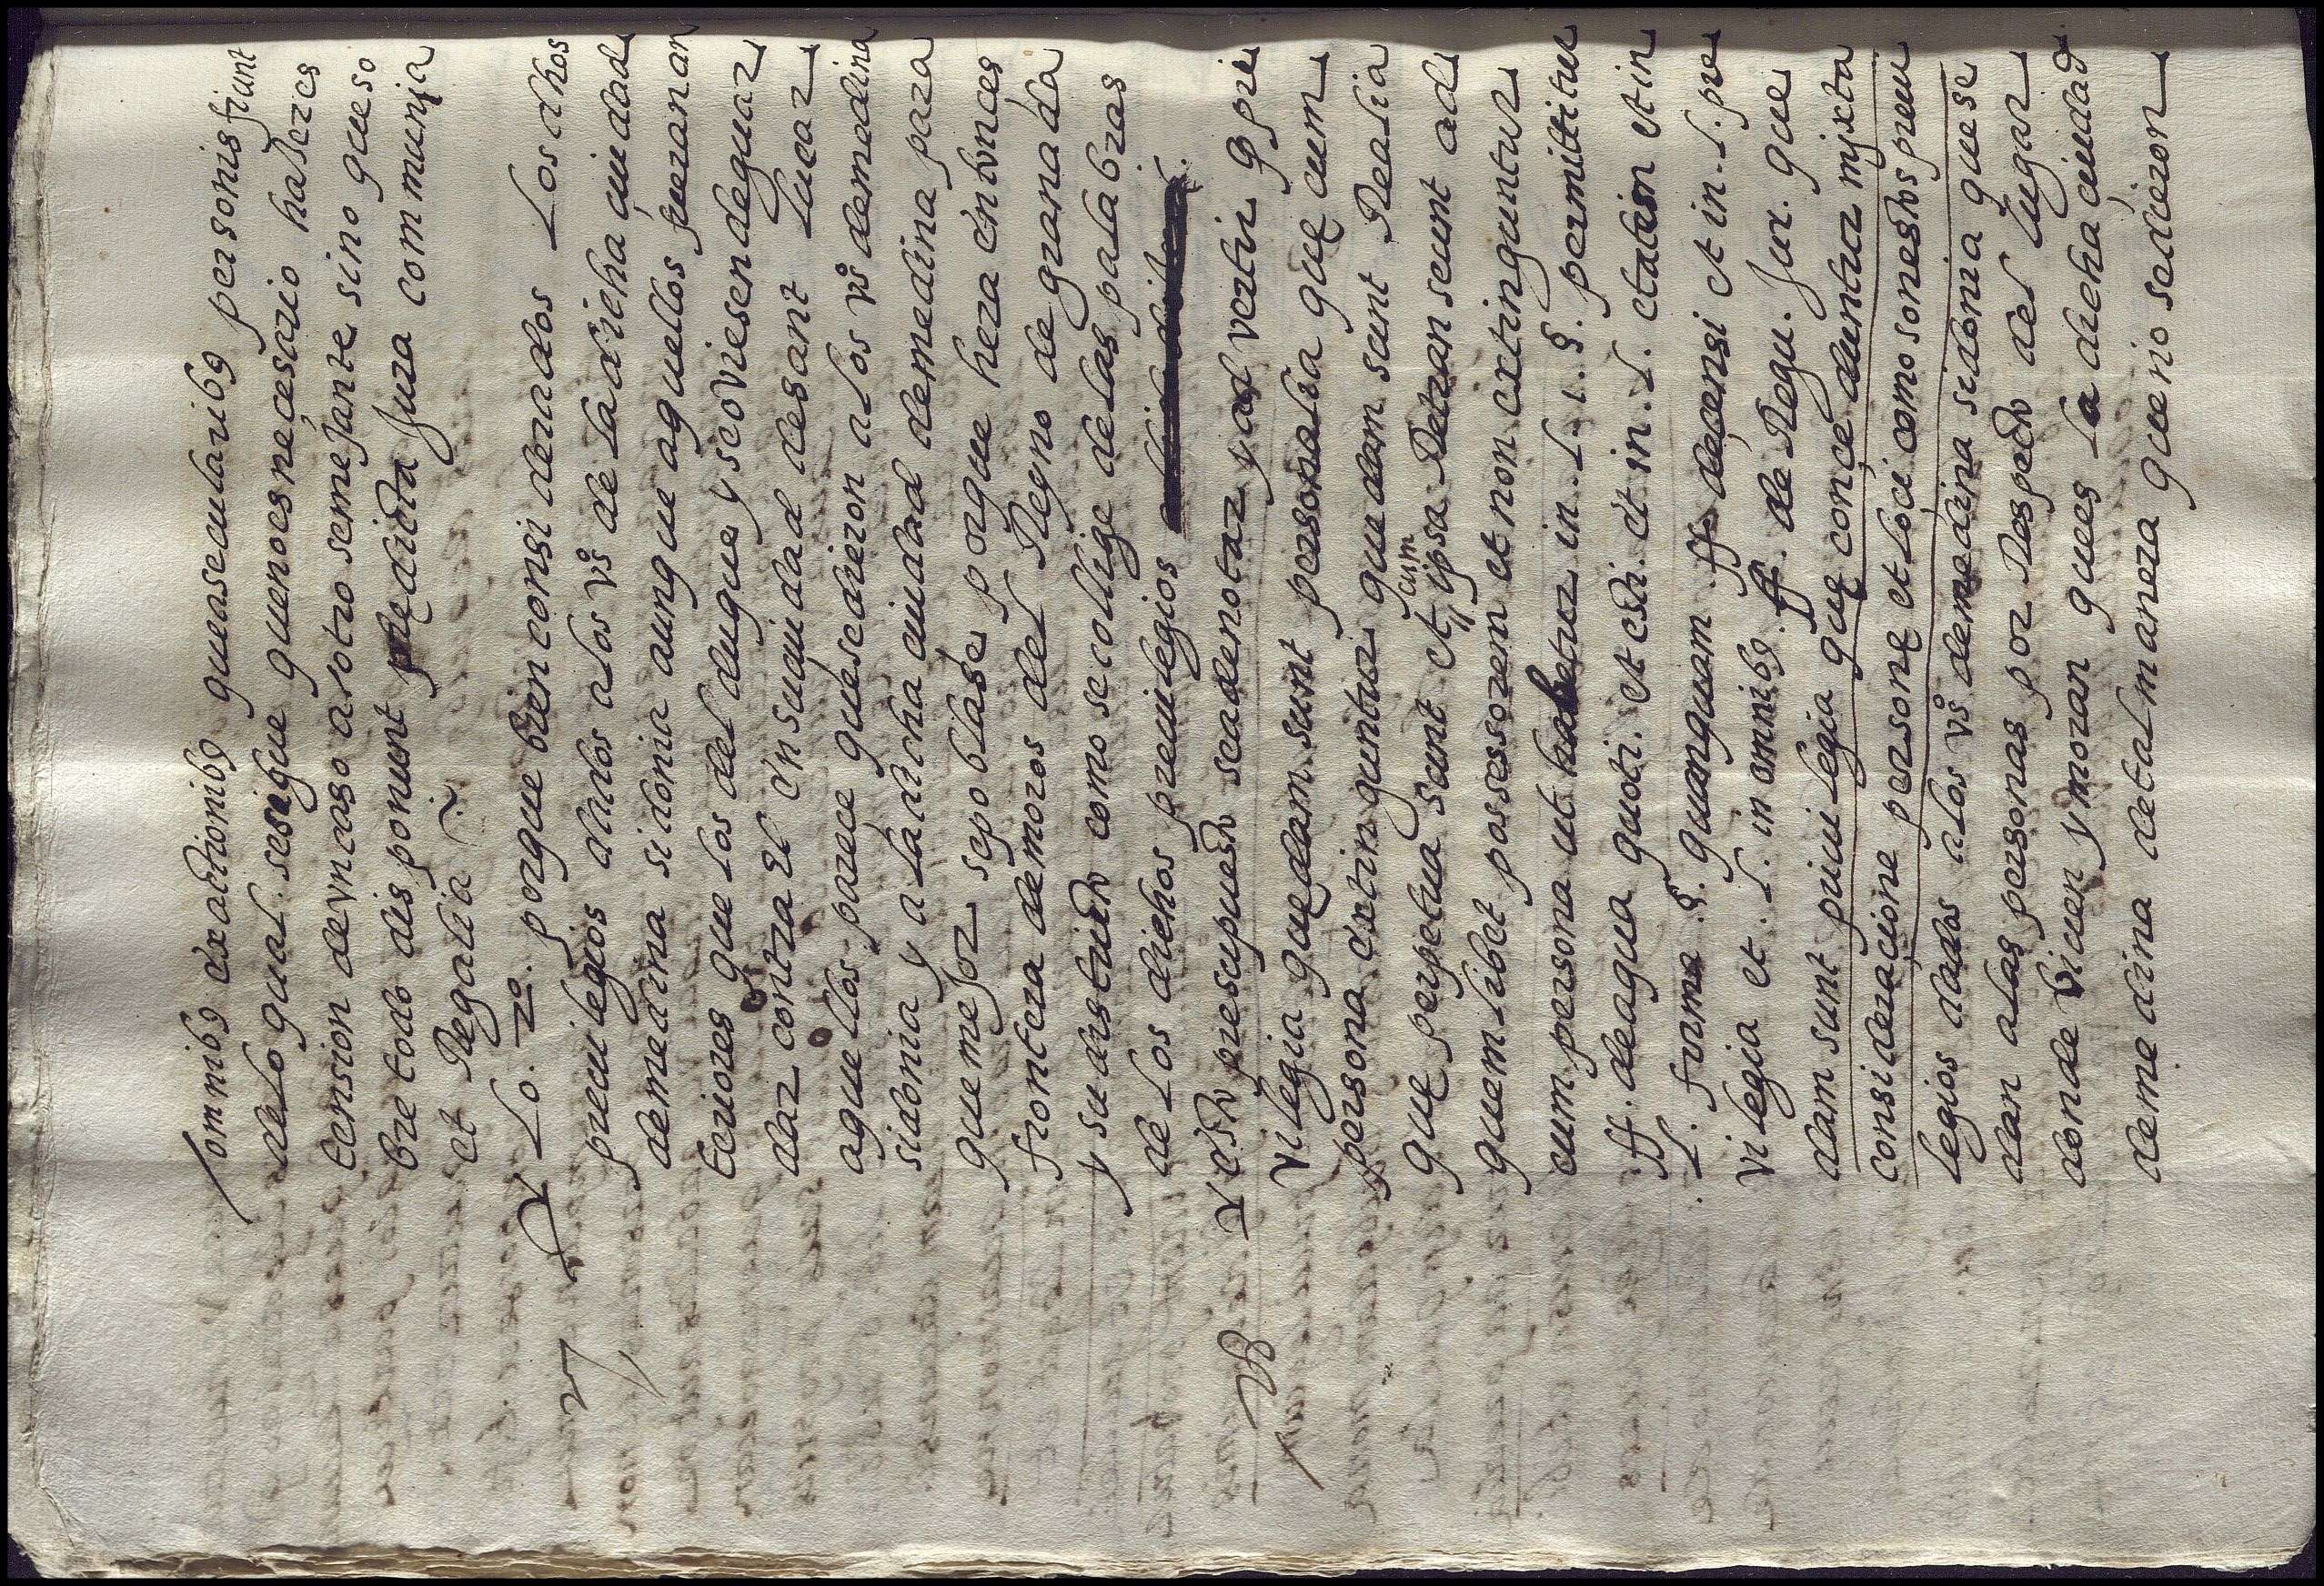 omnibꝯ exactionibꝯ que a secularibꝯ personis fiunt
de lo qual se sigue que no es neçesario hazer ex
tension de vn caso a lotro semejante sino que so
bre todo disponunt prędicta Jura communja
et Regalia
Y Lo. 2o. porque bien considerados Los dhos
preuilegios dados a los vos de la dicha ciudad
de medina sidonia aunque aquellos fueran an
teriores que los del duque y se oviesen de guar
dar contra El en su ciudad de sant lucar
aquellos parece que se dieron a los vos de medina
sidonia y a la dicha ciudad de medina para
que mejor se poblase porque hera entonces
frontera de moros del Reyno de granada
y su distrito como se collige de las palabras
de los dichos preuilegios
Y esto presupuesto se a de notar y advertir que pri
vilegia quędam sunt personalia quę cum
persona extinguntur quedam sunt Realia
quę perpetua sunt et cum ipsa Re transeunt ad
quemlibet possessorem et non extinguntur
cum persona ut habetur in. l. 1. §. permittitur
ff. de aqua quoti. et esti. et in. l. etatem et in
l. forma §. quanquam ff de censi et in. l. pri
vilegia et. l. in omnibꝯ. ff. de Regu. Jur. que
dam sunt priuilegia quę conçeduntur mjxta
consideraçione personę et loci como son estos preui
legios dados a los vos de medina sidonia que se
dan a las personas por Respecto del lugar
donde viuen y moran que es la dicha ciudad
de medina de tal manera que no se dieron